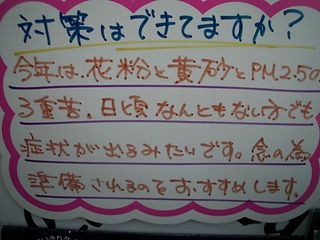 対策はできてますか？
今年は、花粉と黄砂とPM2.5の
3重苦、日頃なんともない方でも
症状が出るみたいです。念の為
準備されるのをおすすめします。